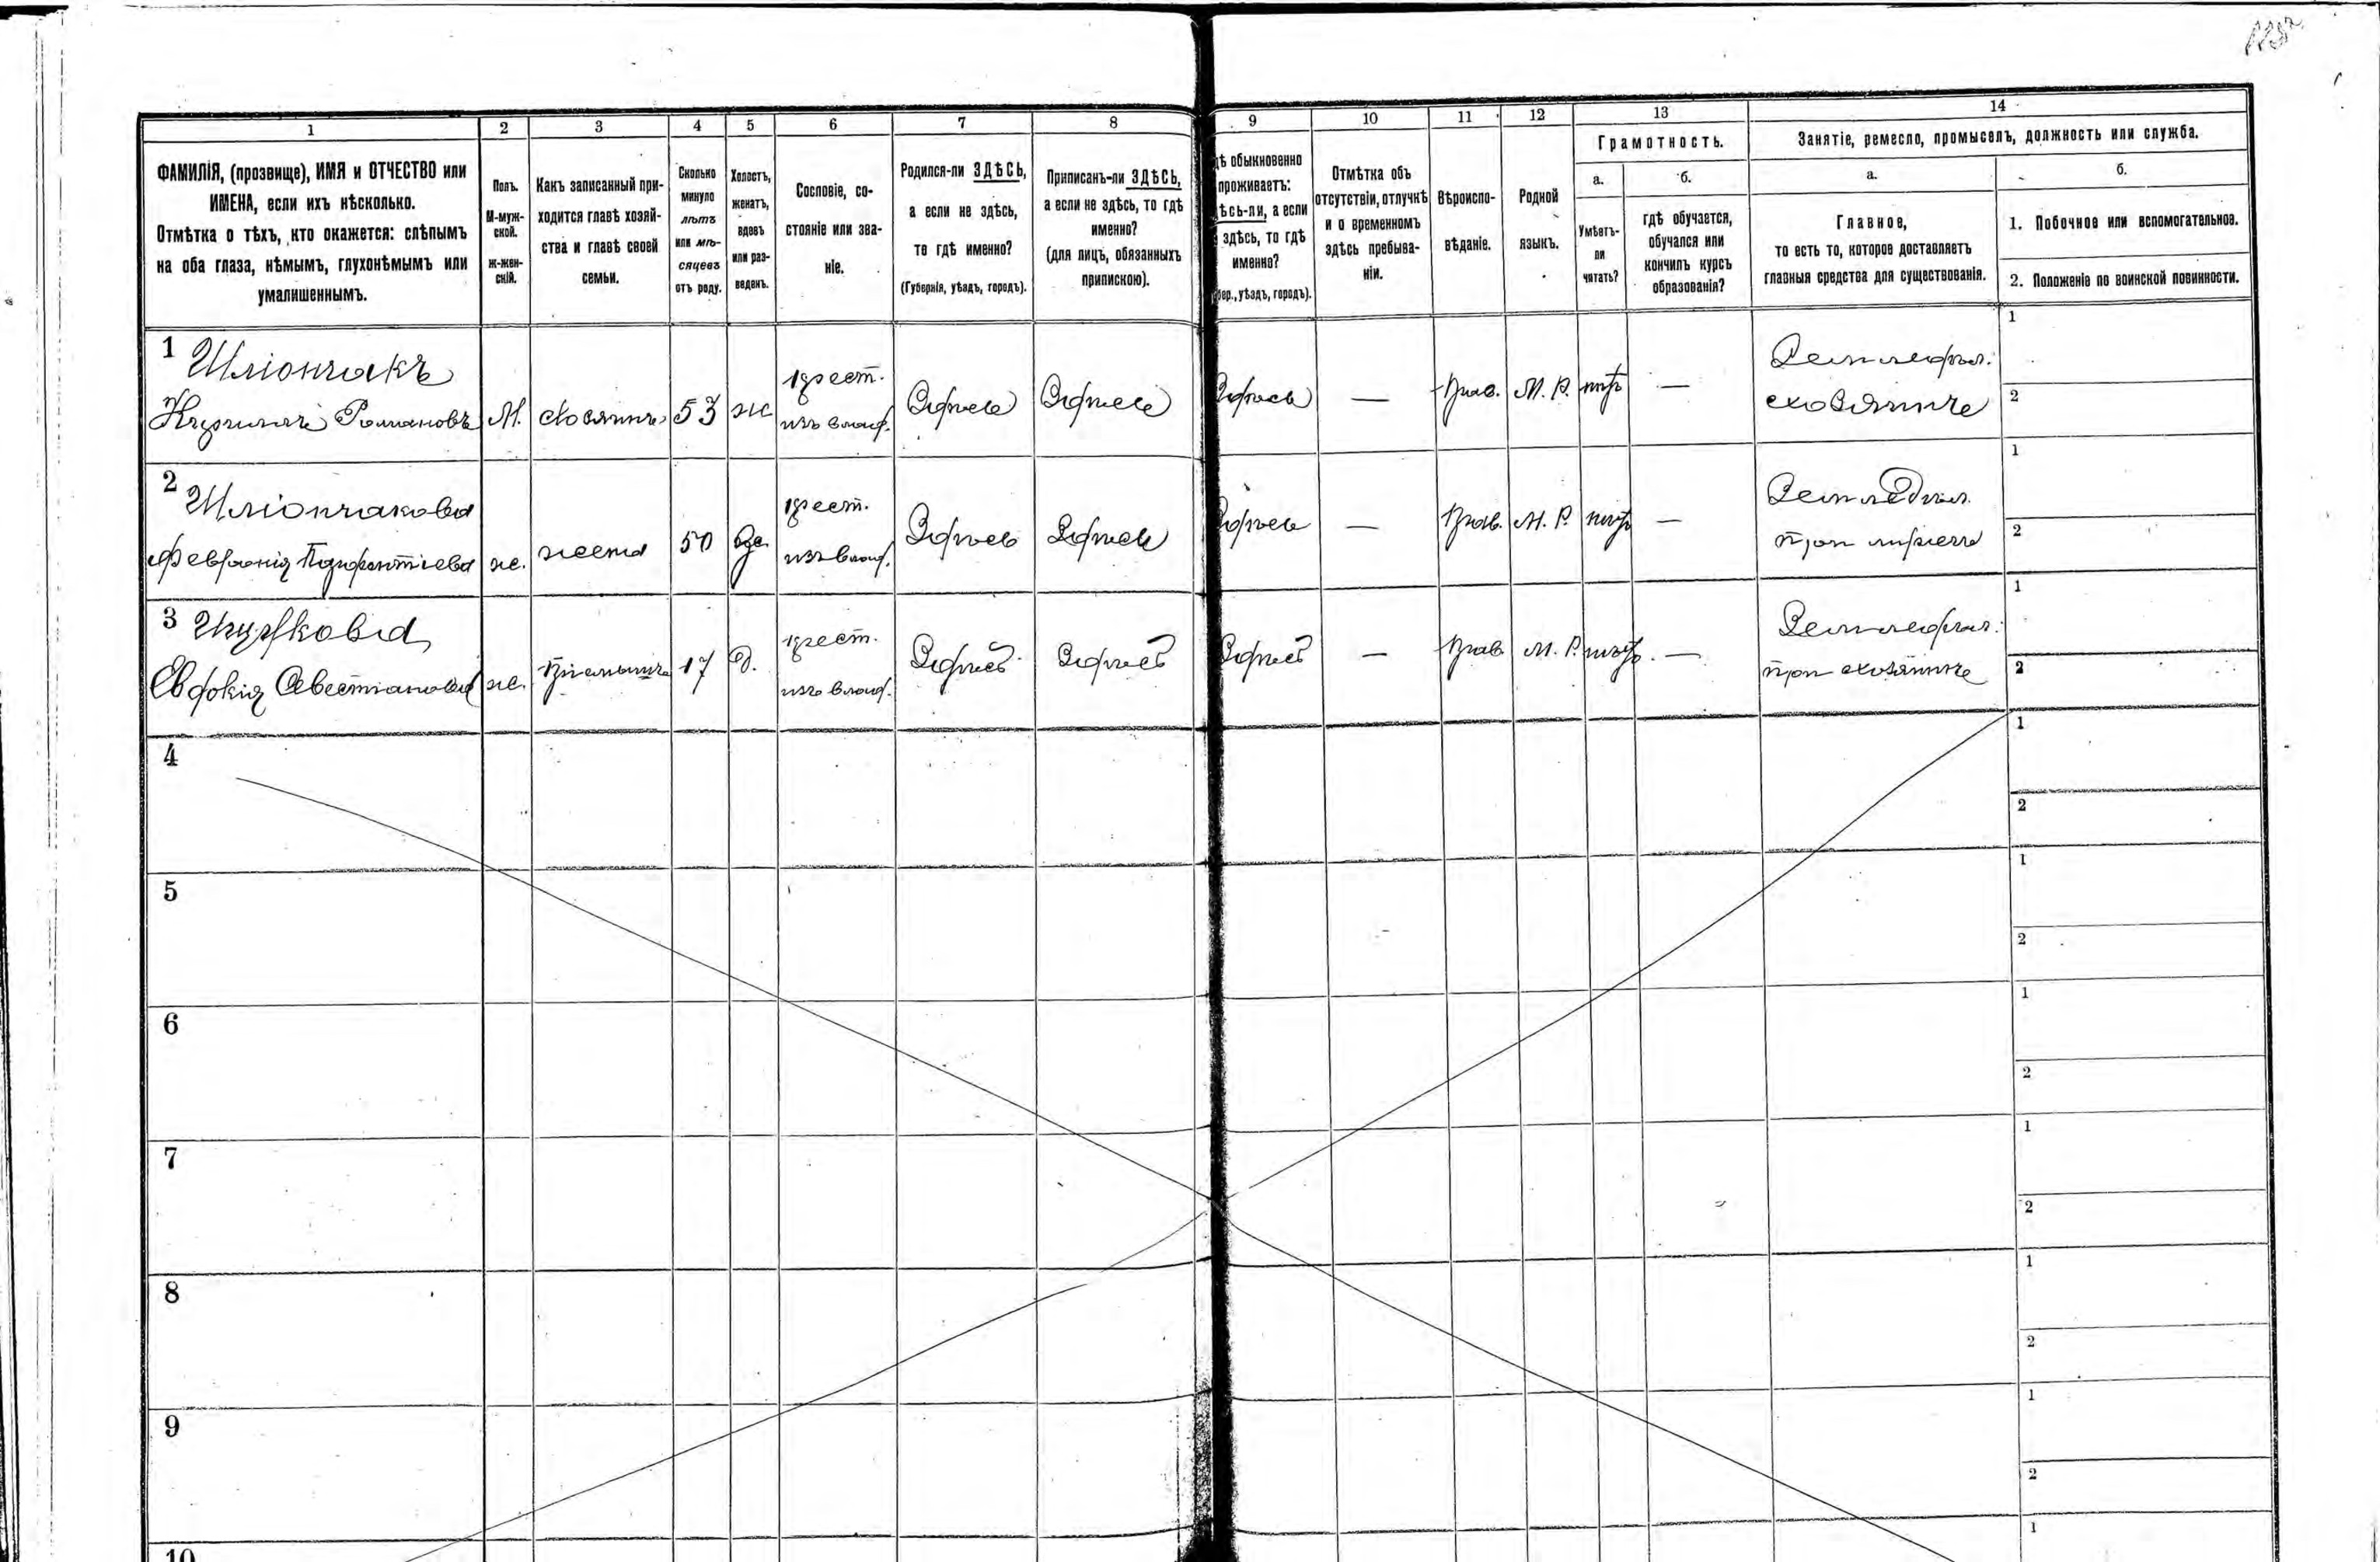 1 2 3 4 5 6 7 8 9 10 11 12 13 14
ФАМИЛІЯ, (прозвище), ИМЯ и ОТЧЕСТВО или
ИМЕНА, если ихъ нѣсколько.
Отмѣтка о тѣхъ, кто окажется: слѣпымъ
на оба глаза, нѣмымъ, глухонѣмымъ или
умалишеннымъ.
Полъ.
М-муж-
ской.
ж-жен-
скій.
Какъ записанный при-
ходится главѣ хозяй-
ства и главѣ своей
семьи.
Сколько
минуло
лѣтъ
или мѣ-
сяцевъ
отъ роду.
Холостъ,
женатъ,
вдовъ
или раз-
веденъ.
Сословіе, со-
стояніе или зва-
ніе.
Родился-ли ЗДѢСЬ,
а если не здѣсь,
то гдѣ именно?
(Губернія, уѣздъ, городъ).
Приписанъ-ли ЗДѢСЬ,
а если не здѣсь, то гдѣ
именно?
(для лицъ, обязанныхъ
припискою).
ѣ обыкновенно
проживаетъ:
ѣсь-ли, а если
здѣсь, то гдѣ
именно?
бер., уѣздъ, городъ).
Отмѣтка объ
отсутствіи, отлучкѣ
и о временномъ
здѣсь пребыва-
ніи.
Вѣроиспо-
вѣданіе.
Родной
языкъ.
Грамотность.
а.
Умѣетъ-
ли
читать?
б.
гдѣ обучается,
обучался или
кончилъ курсъ
образованія?
Занятіе, ремесло, промыселъ, должность или служба.
а.
Главное,
то есть то, которое доставляетъ
главныя средства для существованія.
б.
1. Побочное или вспомогательное.
2. Положеніе по воинской повинности.
1
Романовъ
М.
53
ж
крест.
изъ влад.
Здѣсь
Здѣсь
Здѣсь
—
Прав.
М. Р.
нѣтъ
—
Земледѣл.
хозяинъ
1
2
2
Февронія
ж.
жена
50
крест.
изъ влад.
Здѣсь
Здѣсь
Здѣсь
—
Прав.
М. Р.
нѣтъ
—
Земледѣл.
при мужѣ
1
2
3
ж.
17
д.
крест.
изъ влад.
Здѣсь
Здѣсь
Здѣсь
—
Прав
М. Р.
нѣтъ.
—
Земледѣл.
при хозяинѣ
1
2
4
1
2
5
1
2
6
1
2
7
1
2
8
1
2
9
1
2
10
1